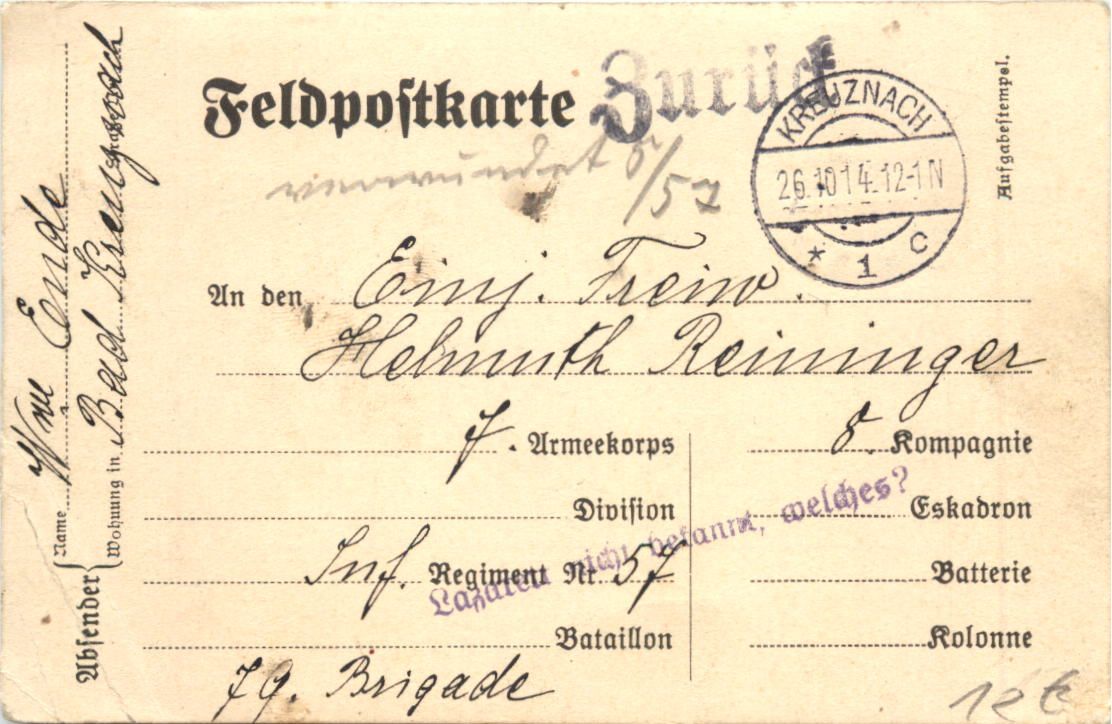 Feldpostkarte
Zurück
KREUZNACH
26.10 14. 12-1 N
* 1 c
Aufgabestempel.
verwundet 8/57
An den Einj. Freiw.
Helmuth Reininger
7. Armeekorps
Division
Inf. Regiment Nr. 57
Bataillon
79. Brigade
8. Kompagnie
Eskadron
Batterie
Kolonne
Lazarett nicht bekannt, welches?
Absender
Name Wwe Ende
Wohnung in Bad Kreuznach
12 €